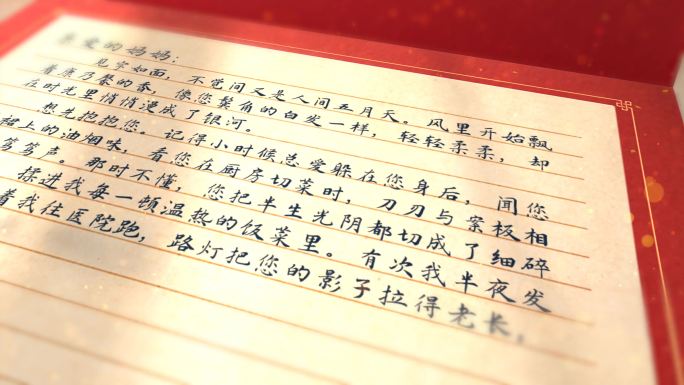 亲爱的妈妈：
见字如面，不觉间又是人间五月天。风里开始飘
着康乃馨的香，像您鬓角的白发一样，轻轻柔柔，却
在时光里悄悄漫成了银河。
想先抱抱您。记得小时候总爱躲在您身后，闻您
裙上的油烟味，看您在厨房切菜时，刀刃与案板相
笃笃声。那时不懂，您把半生光阴都切成了细碎
揉进我每一顿温热的饭菜里。有次我半夜发
着我往医院跑，路灯把您的影子拉得老长，